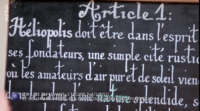 Article 1:
Héliopolis doit être dans l'esprit
ses fondateurs, une simple cité rusti
où les amateurs d'air pur et de soleil vien
nature splendide, s